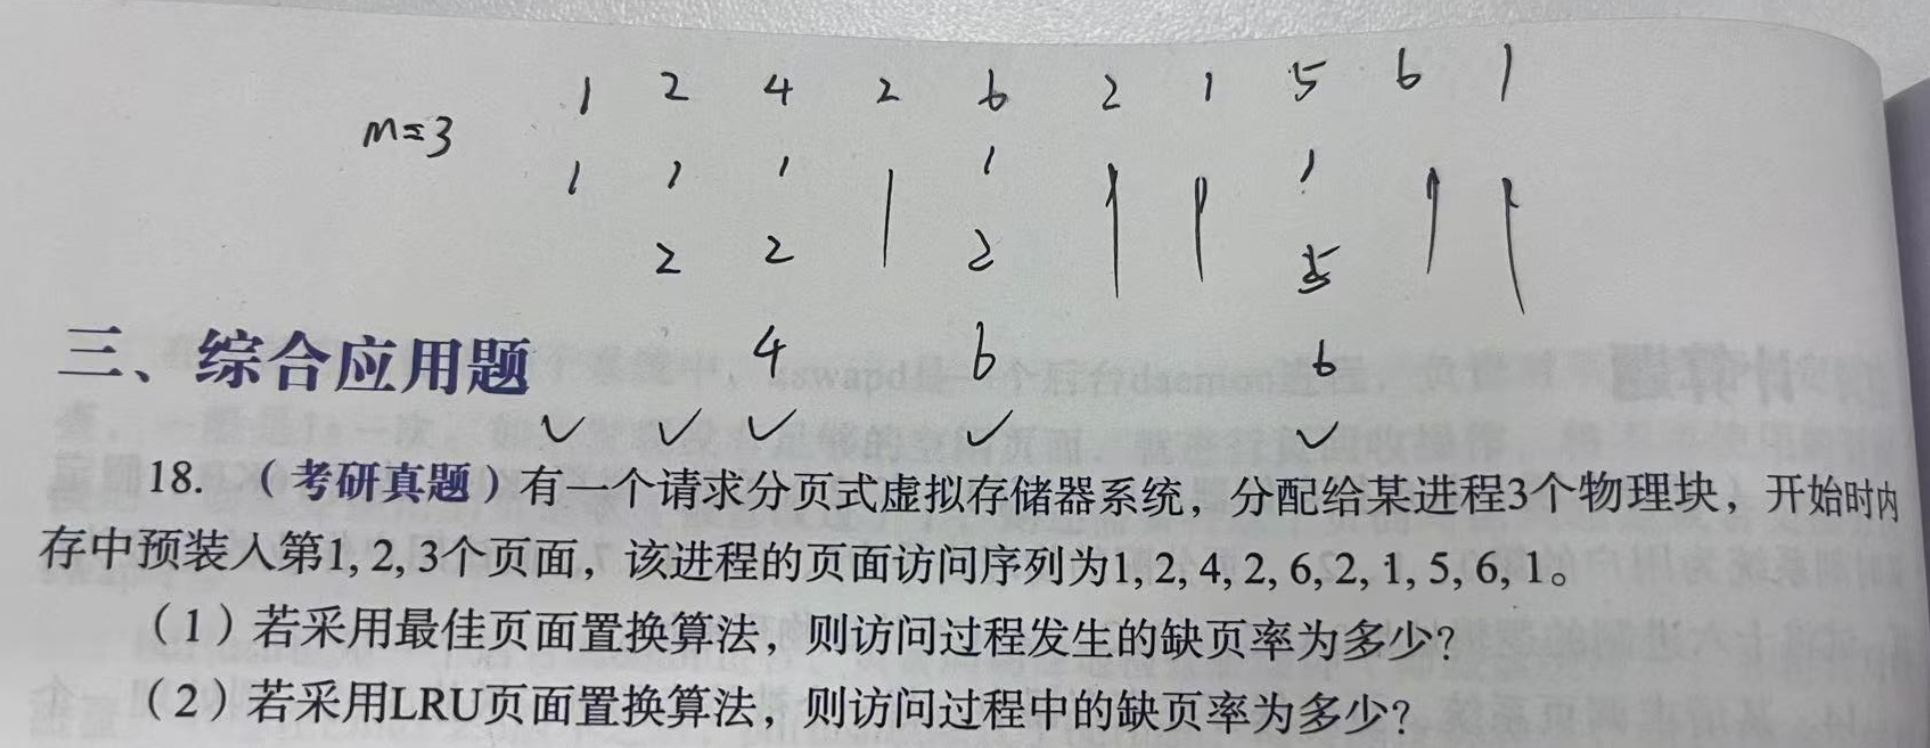 1 2 4 2 6 2 1 5 6 1
m=3
1 1 1 1 1
2 2 2 5
4 6 6
三、综合应用题
18.（考研真题）有一个请求分页式虚拟存储器系统，分配给某进程3个物理块，开始时内
存中预装入第1, 2, 3个页面，该进程的页面访问序列为1, 2, 4, 2, 6, 2, 1, 5, 6, 1。
（1）若采用最佳页面置换算法，则访问过程发生的缺页率为多少？
（2）若采用LRU页面置换算法，则访问过程中的缺页率为多少？